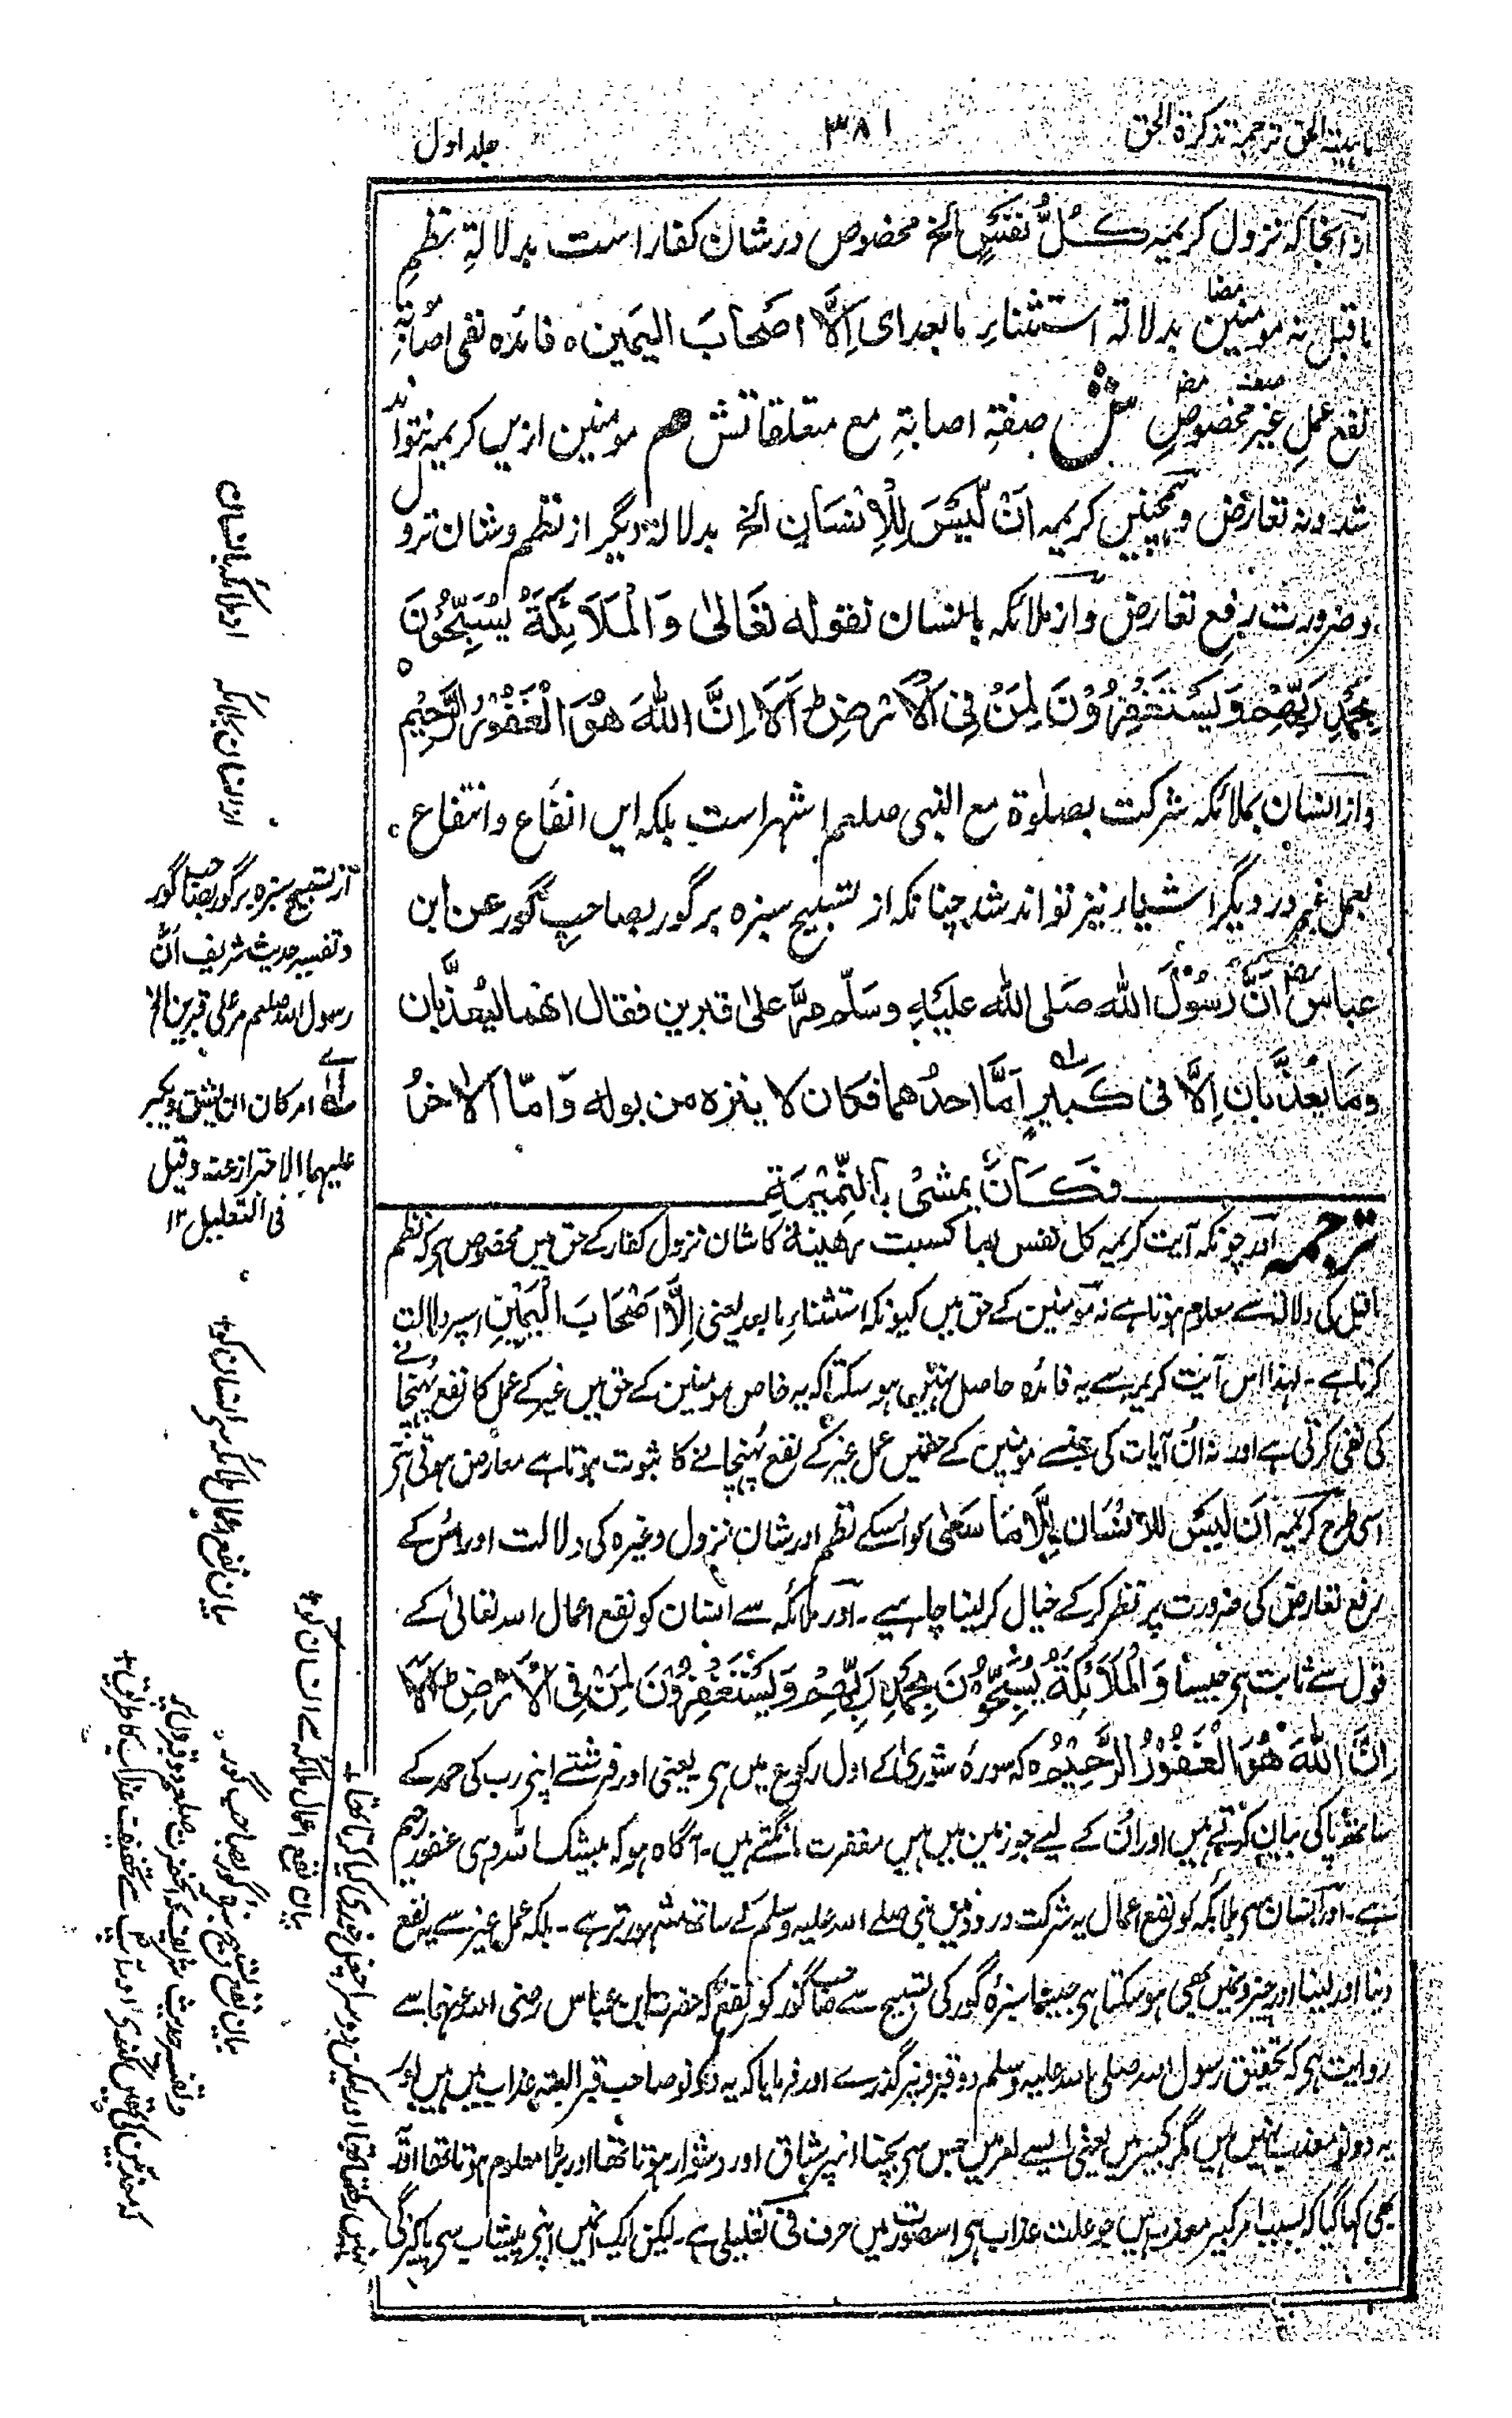 تذکرة الحق ترجمہ تذکرة الحق
۳۸۱
جلد اول
ازآنجا کہ نزول کریمہ کُلُّ نَفْسٍ الخ مخصوص در شان کفار است بدلالةِ نظمِ
ماقبل نہ مومنین بدلالة استثناءِ مابعد ای اِلَّا اَصْحَابَ الیَمین ہ فائدہ نفی اصابةِ
نفع عملِ غیر مخصوصِ ش صفةِ اصابةِ مع متعلقاتش هم مومنین ازیں کریمہ نتواند
شد ونہ تعارض وہمچنیں کریمہ اَنْ لَّیْسَ لِلْاِنْسَانِ الخ بدلالة دیگر از نظم وشان نزول
وضرورت رفع تعارض واز ملائکہ بانسان بقوله تَعَالیٰ وَالْمَلَائِکَةُ یُسَبِّحُوْنَ
بِحَمْدِ رَبِّهِمْ وَیَسْتَغْفِرُوْنَ لِمَنْ فِی الْاَرْضِ ط اَلَا اِنَّ اللهَ هُوَ الْغَفُوْرُ الرَّحِیْمُ ہ
واز انسان بملائکہ شرکت بصلوٰة مع النبی صلعم اشہر است بلکہ ایں انفاع وانتفاع
بعمل غیر در دیگر اشیاء نیز تواند شد چنانکہ از تسبیح سبزہ بر گور بصاحبِ گور عن ابن
عباس رض اَنَّ رَسُوْلَ الله صَلی الله عَلَیْهِ وسَلّم مرَّ علیٰ قبرین فقال انهما لیعذَّبان
ومَا یُعذَّبان اِلَّا فی کَبِیْرٍ اَمَّا احدُهما فکان لا ینزه من بوله وَامّا الاٰخرُ
فَکَانَ یمشیْ بِالنَّمِیْمَةِ
ترجمہ اور چونکہ آیت کریمہ کل نفس بما کسبت رهینة کا شان نزول کفار کے حق میں مخصوص ہے کہ نظم
ماقبل کی دلالت سے معلوم ہوتا ہے نہ مومنین کے حق میں کیونکہ استثناءِ مابعد یعنی اِلَّا اَصْحَابَ الْیَمِیْنِ اسپر دلالت
کرتا ہے۔ لہذا اس آیت کریمہ سے یہ فائدہ حاصل نہیں ہو سکتا کہ یہ خاص مومنین کے حق میں غیر کے عمل کا نفع پہنچانے
کی نفی کرتی ہے اور نہ اُن آیات کی جنسے مومنین کے حقمیں عمل غیر کے نفع پہنچانے کا ثبوت ہوتا ہے معارض ہوتی ہے
اسی طرح کریمہ اَنْ لَیْسَ للاِنْسَان اِلَّا مَا سَعٰی کو اسکے نظم اور شان نزول وغیرہ کی دلالت اور اس کے
رفع تعارض کی ضرورت پر نظر کر کے خیال کر لینا چاہیے۔ اور ملائکہ سے انسان کو نفع اعمال اللہ تعالیٰ کے
قول سے ثابت ہی جیسا وَالْمَلَائِکَةُ یُسَبِّحُوْنَ بِحَمْدِ رَبِّهِمْ وَیَسْتَغْفِرُوْنَ لِمَنْ فِی الْاَرْضِ ط اَلَا
اِنَّ اللهَ هُوَ الْغَفُوْرُ الرَّحِیْمُ ہ کہ سورہ شوریٰ کے اول رکوع میں ہی یعنی اور فرشتے اپنی رب کی حمد کے
ساتھ پاکی بیان کرتے ہیں اور اُن کے لیے جو زمین میں ہیں مغفرت مانگتے ہیں۔ آگاہ ہو کہ بیشک اللہ وہی غفور رحیم
ہے۔ اور انسان سی ملائکہ کو نفع اعمال یہ شرکت درود میں نبی صلے اللہ علیہ وسلم کے ساتھ مشہور تر ہے۔ بلکہ عمل غیر سے یہ نفع
دنیا اور لینا اور چیزونمیں بھی ہو سکتا ہی جیسا سبزہ گور کی تسبیح سے صاحب گور کو نفع کہ حضرت ابن عباس رضی اللہ عنہما سے
روایت ہی کہ تحقیق رسول اللہ صلی اللہ علیہ وسلم دو قبرونپر گذرے اور فرمایا کہ یہ دونو صاحب قبر البتہ عذاب میں ہیں اور
یہ دونو معذب نہیں ہیں مگر کبیر میں یعنی ایسے امر میں جس سی بچنا انپر شاق اور دشوار ہوتا تھا اور بڑا معلوم ہوتا تھا
بھی کہا گیا کہ بسبب امر کبیر معذب ہیں جو علت عذاب ہی اسصورت میں حرف فی تعلیلی ہے۔ لیکن ایک انمیں اپنی پیشاب سی پاکیزگی
از ملائکہ بانسان
از انسان بملائکہ
از تسبیح سبزہ بر گور بصاحب گور
وتفسیر حدیث شریف اَنَّ
رسول اللہ صلعم مر علی قبرین الخ
امر کان ان یشق ویکبر
علیهما الاحتراز عنه وقیل
فی التعلیل ۱۲
بیان نفع اعمال ملائکہ سی انسان کو
بیان نفع اعمال ملائکہ سے انسان کو
بیان نفع تسبیح سبزہ گور بصاحب گور